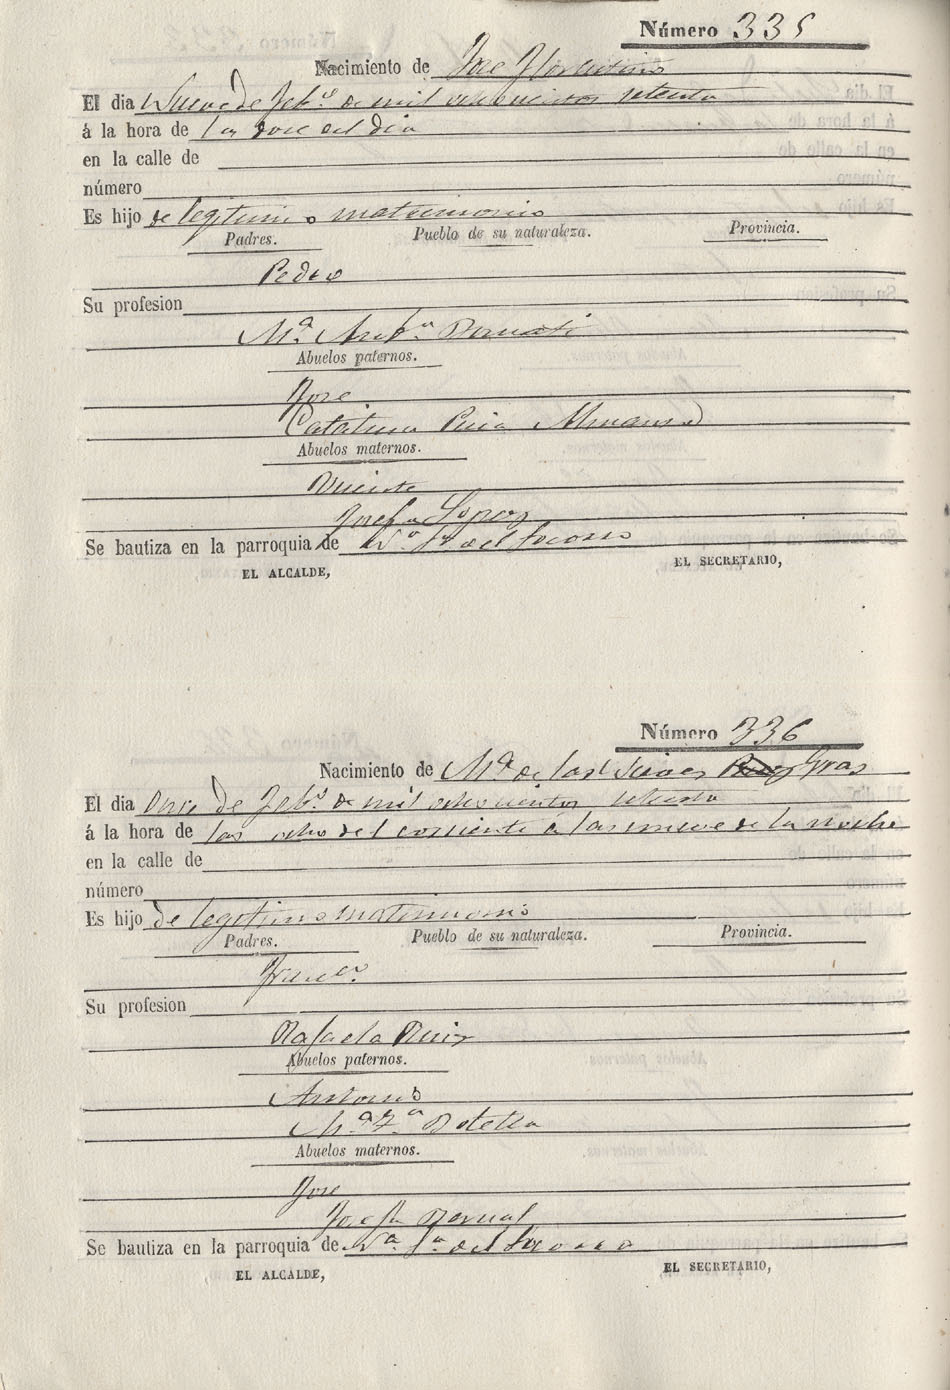 Número 335
Nacimiento de José Florentino
El dia Nueve de Feb.º de mil ochocientos setenta
á la hora de las doce del dia
en la calle de
número
Es hijo de legitimo matrimonio
Padres. Pueblo de su naturaleza. Provincia.
Pedro
Su profesion
M.ª Ant.ª
Abuelos paternos.
José
Catalina
Abuelos maternos.
Vicente
Josefa Lopez
Se bautiza en la parroquia de N.ª S.ª del Socorro
EL ALCALDE, EL SECRETARIO,
Número 336
Nacimiento de M.ª de las Nieves Gras
El dia Once de Feb.º de mil ochocientos setenta
á la hora de las ocho del corriente á las nueve de la noche
en la calle de
número
Es hijo de legitimo matrimonio
Padres. Pueblo de su naturaleza. Provincia.
Fran.co
Su profesion
Rafaela Ruiz
Abuelos paternos.
Antonio
M.ª F.ª Botella
Abuelos maternos.
José
Josefa Bernal
Se bautiza en la parroquia de N.ª S.ª del Socorro
EL ALCALDE, EL SECRETARIO,